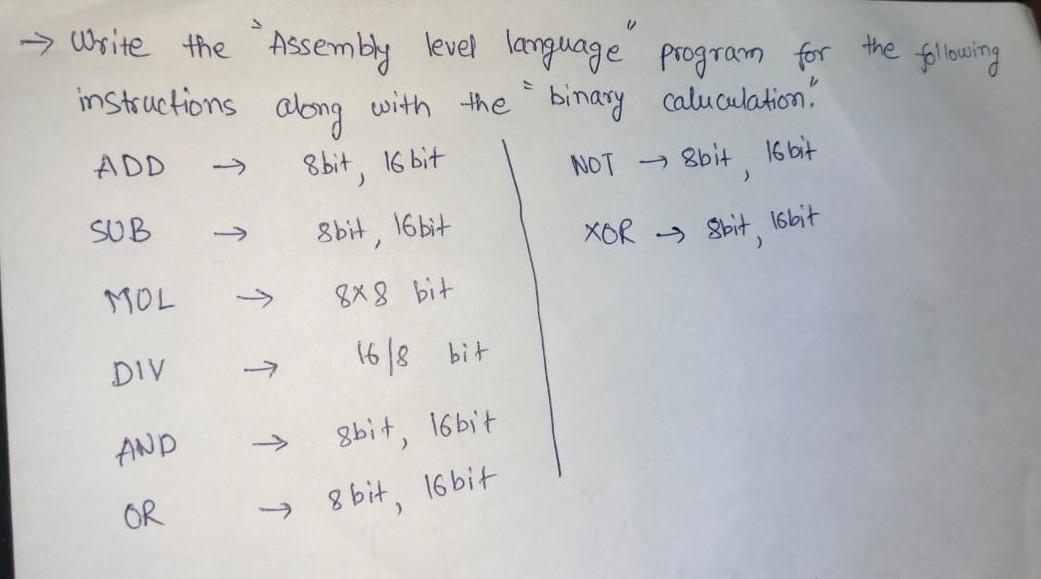 → Write the "Assembly level language" program for the following
instructions along with the "binary caluculation."
ADD → 8bit, 16bit
SUB → 8bit, 16bit
MOL → 8×8 bit
DIV → 16/8 bit
AND → 8bit, 16bit
OR → 8bit, 16bit
NOT → 8bit, 16bit
XOR → 8bit, 16bit